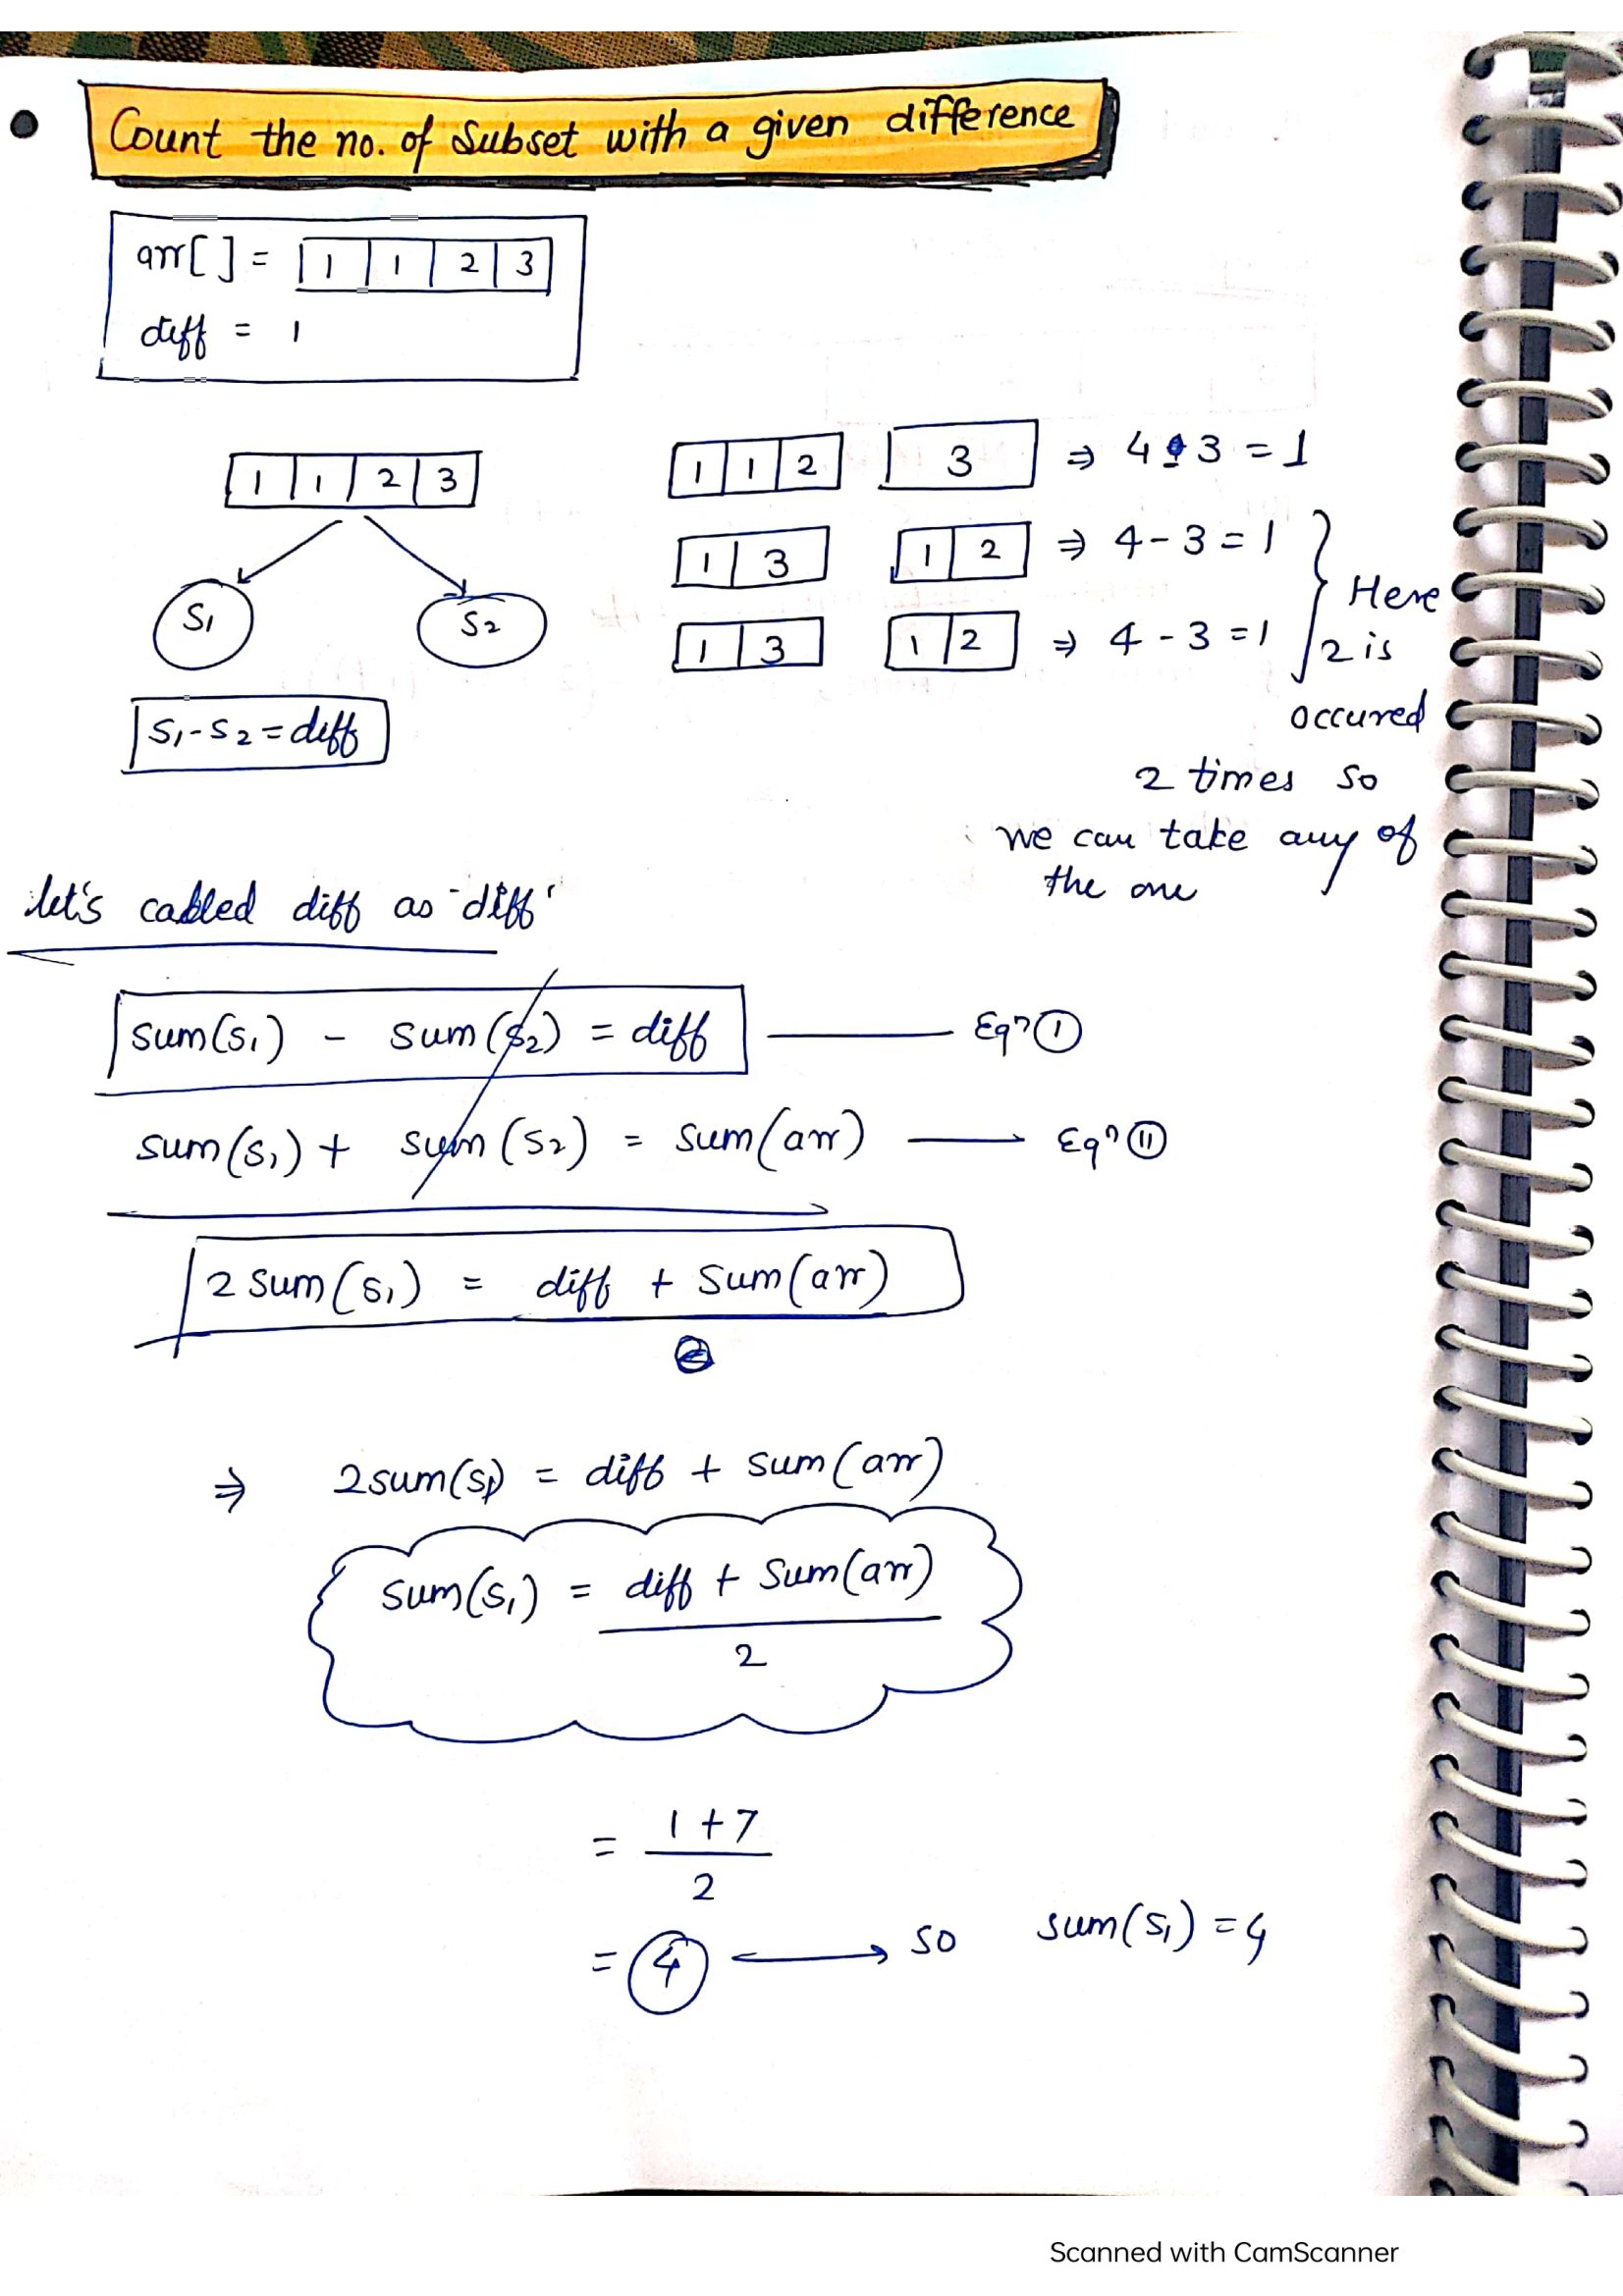 Count the no. of Subset with a given difference
arr[] = 1 1 2 3
diff = 1
1 1 2 3
S1 S2
S1 - S2 = diff
1 1 2 3 ⇒ 4 - 3 = 1
1 3 1 2 ⇒ 4 - 3 = 1
1 3 1 2 ⇒ 4 - 3 = 1
Here
2 is
occured
2 times so
we can take any of
the one
let's called diff as "diff"
sum(S1) - sum(S2) = diff Eqn ①
sum(S1) + sum(S2) = sum(arr) Eqn ⑪
2 sum(S1) = diff + sum(arr)
⇒ 2sum(S1) = diff + sum(arr)
sum(S1) = diff + sum(arr)
2
= 1 + 7
2
= 4 → so sum(S1) = 4
Scanned with CamScanner